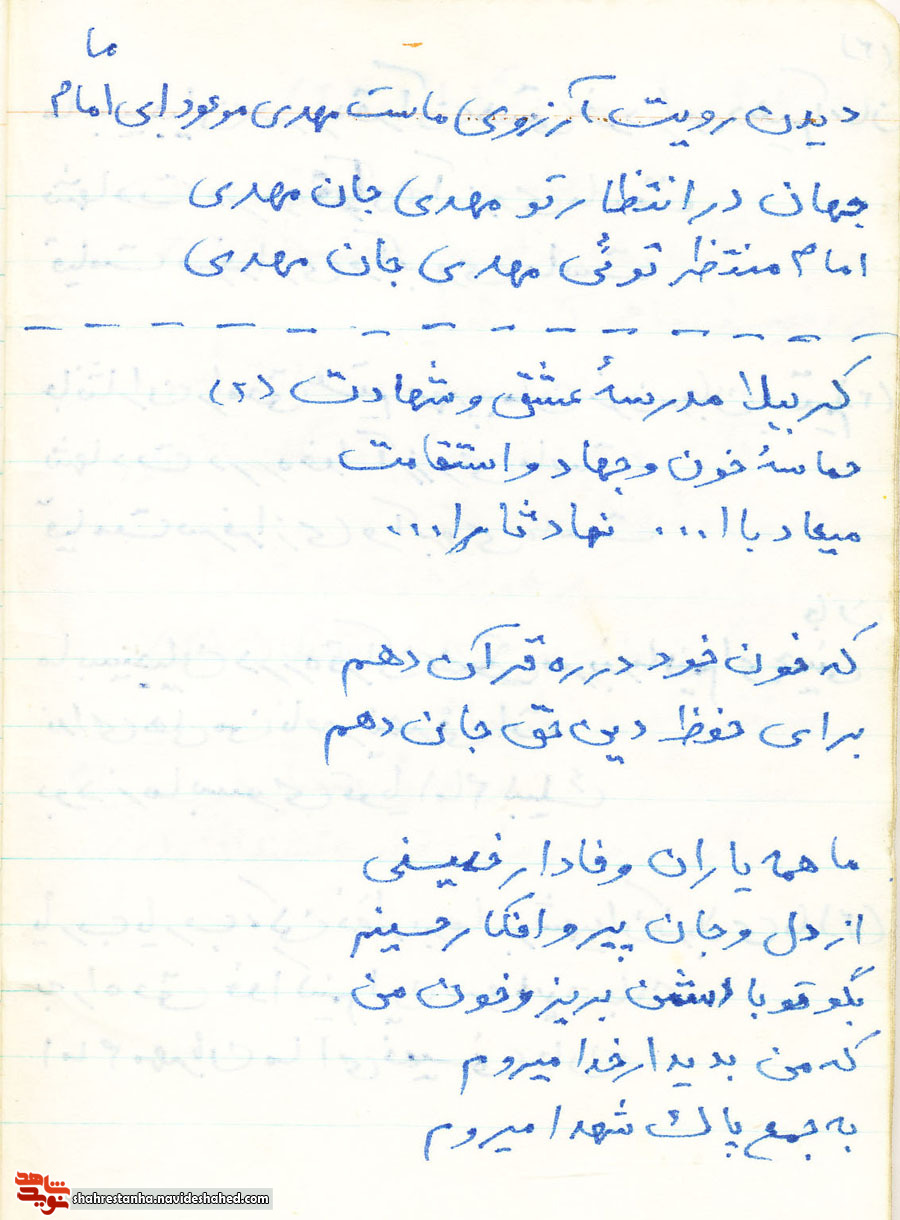 دیدن رویت آرزوی ماست مهدی موعود ای امام ما
جهان در انتظار تو مهدی جان مهدی
امام منتظر توئی مهدی جان مهدی
کربلا مدرسهٔ عشق و شهادت (۲)
حماسهٔ خون و جهاد و استقامت
میعاد با ا... نهاد ثارا...
که خون خود در ره قرآن دهم
برای حفظ دین حق جان دهم
ما همه یاران وفادار خمینی
از دل و جان پیرو افکار حسینیم
بگو تو با دشمن بریز و خون من
که من بدیدار خدا میروم
به جمع پاک شهدا میروم
نوید شاهد
shahrestanha.navideshahed.com